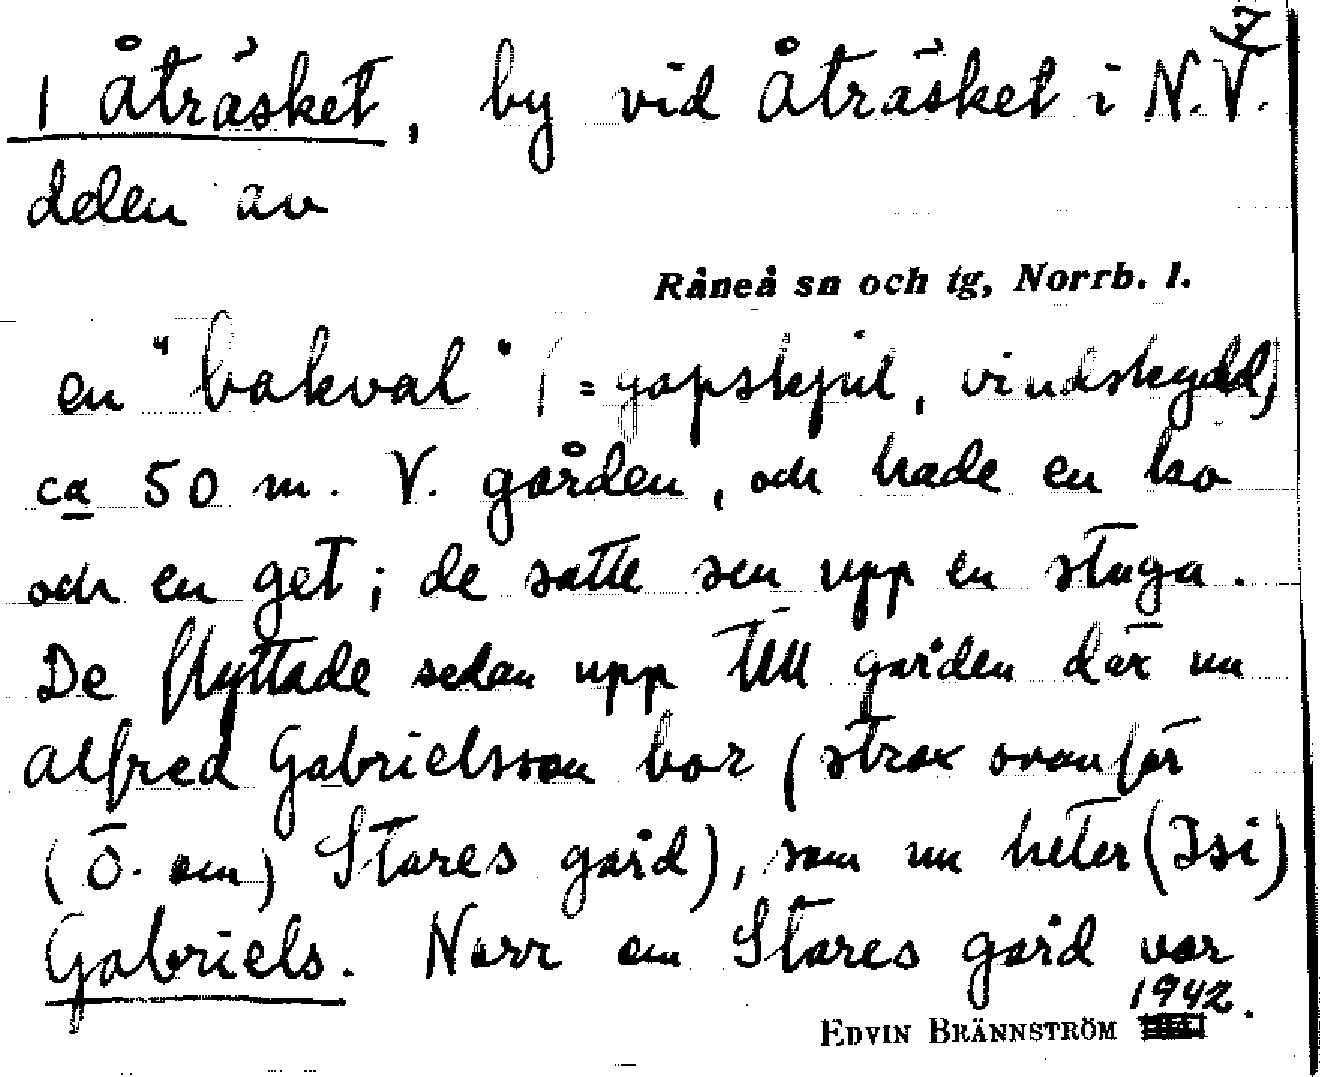 7
1 Åträsket, by vid Åträsket i N.V.
delen av
Råneå sn och tg, Norrb. l.
en "bakval" (= gapskjul, vindskydd)
ca 50 m. V. gården, och hade en ko
och en get; de satte sen upp en stuga.
De flyttade sedan upp till gården där nu
Alfred Gabrielsson bor (strax ovanför
(Ö. om) Stares gård), som nu heter (Isi)
Gabriels. Norr om Stares gård var
1942.
EDVIN BRÄNNSTRÖM